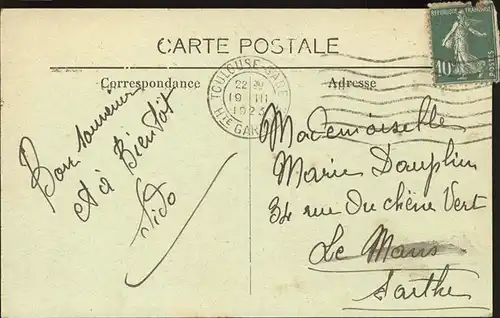 RÉPUBLIQUE FRANÇAISE
10
POSTES
CARTE POSTALE
TOULOUSE-GARE
22
19 III
1923
HTE GAR
Correspondance
Adresse
Bon souvenir
et à Bientôt
Fido
Mademoiselle
Marie Dauphin
34 rue Du chêne Vert
Le Mans
Sarthe